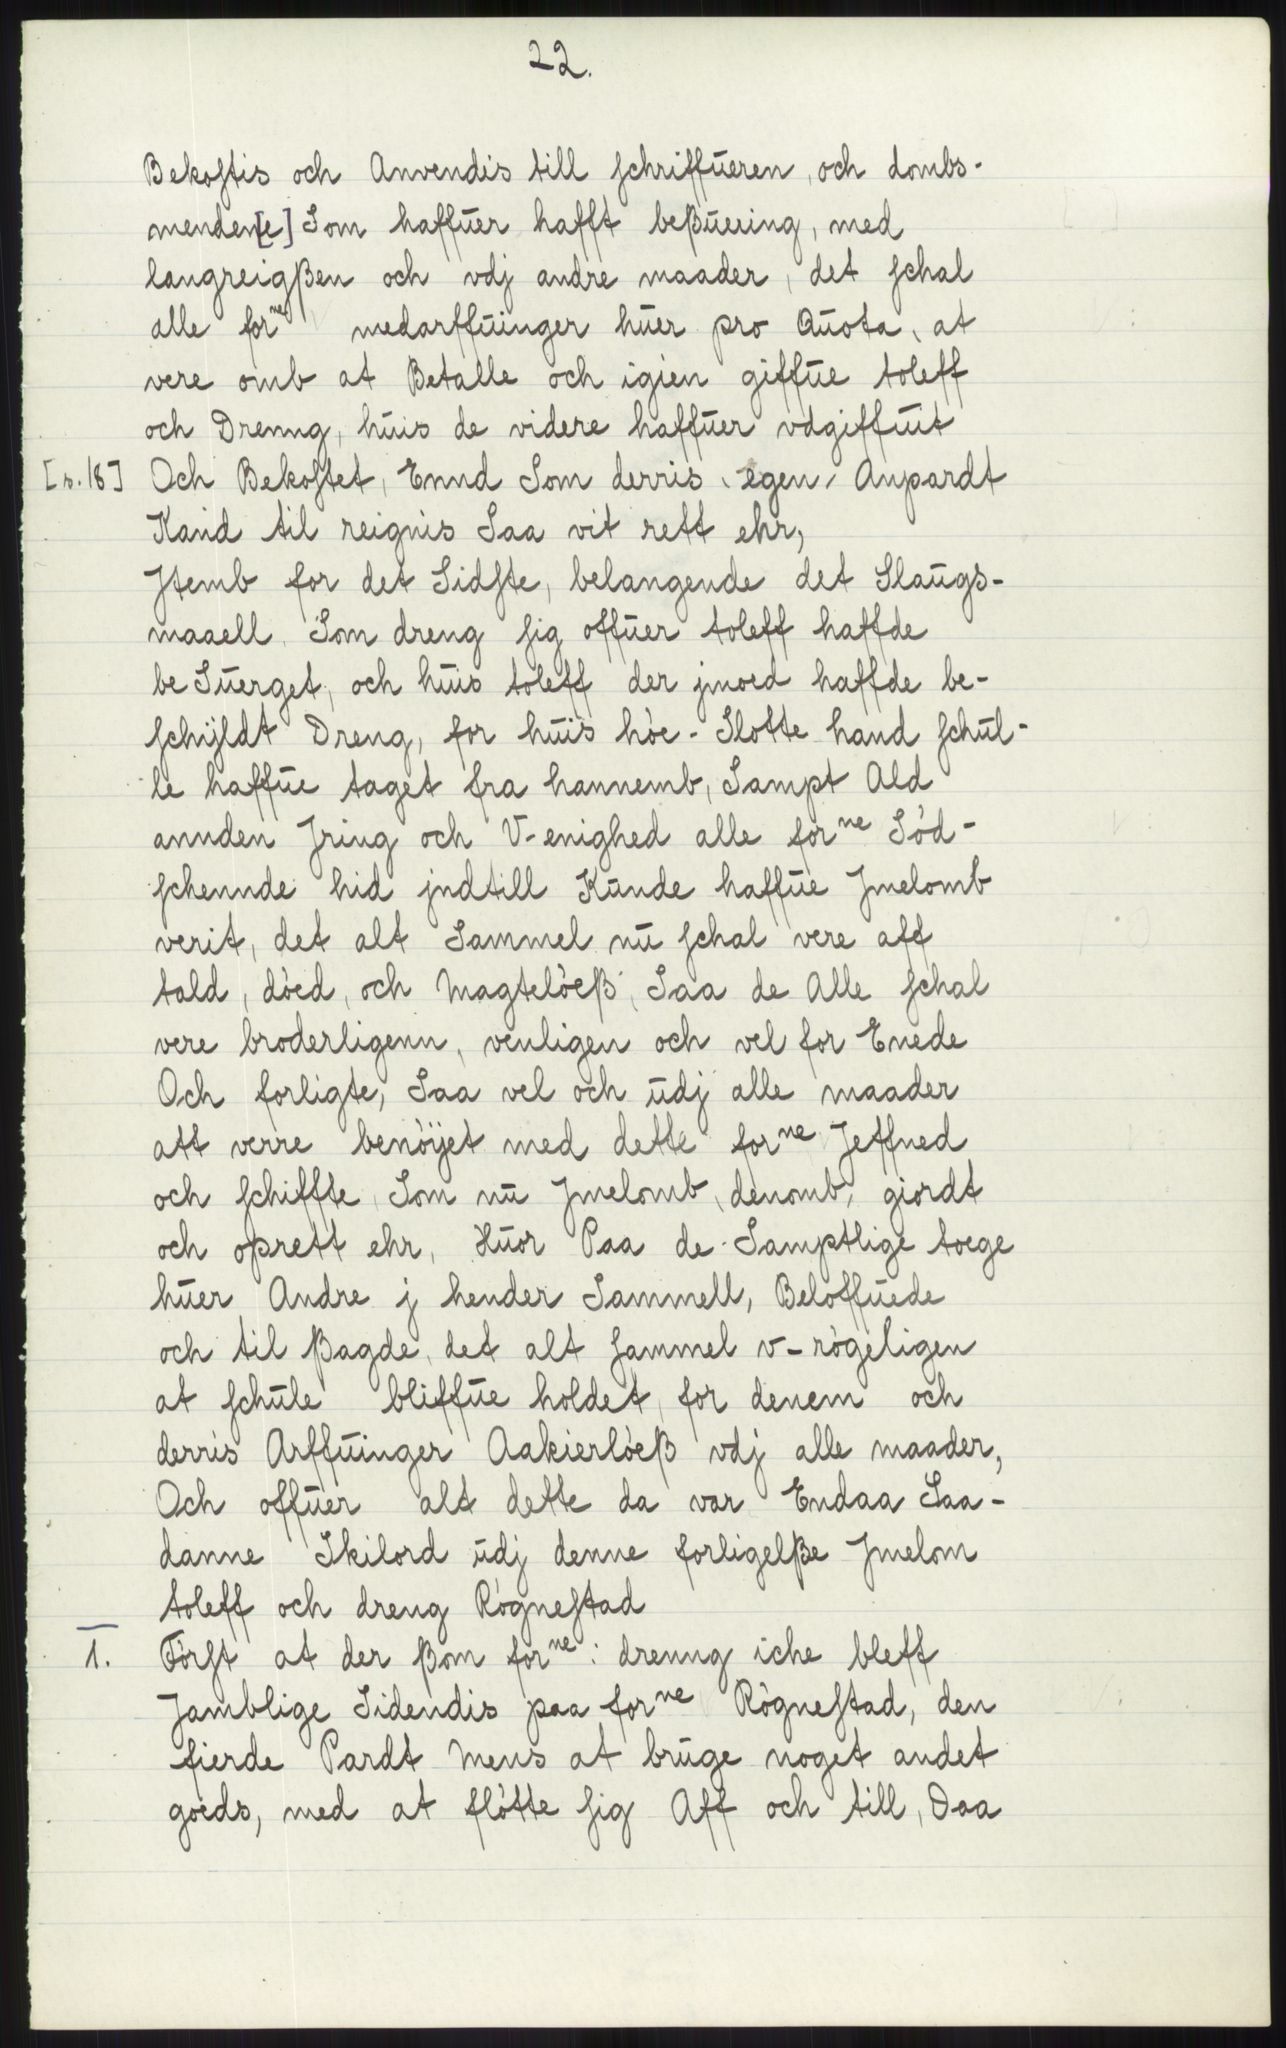 22.
Bekostis och Anvendis till schriffueren, och dombs-
menden[e] Som haffuer hafft beßuering, med
langreigßen och vdj andre maader, det schal
alle forne medarffuinger huer pro Quota, at
vere omb at Betalle och igien giffue toleff
och Drenng, huis de videre haffuer vdgiffuit
[s. 18] Och Bekostet, Ennd Som derris egen Anpardt
Kand til reignis Saa vit rett ehr,
Jtemb for det Sidste, belangende det Slaugs-
maaell Som dreng sig offuer toleff haffde
be Suerget, och huis toleff der jmoed haffde be-
schyldt Dreng, for huis höe-Slotte hand schul-
le haffue taget fra hannemb, Sampt Ald
annden Jring och V-enighed alle forne Söd-
schennde hid jndtill Kunde haffue Jmelomb
verit, det alt Sammel nu schal vere aff
tald, döed, och Magtelöeß, Saa de Alle schal
vere broderligenn, venligen och vel for Enede
Och forligte, Saa vel och udj alle maader
att verre benöyet med dette forne Jeffned
och schiffte Som nu Jmelomb, denomb, giordt
och oprett ehr, Huor Paa de Samptlige toege
huer Andre j hender Sammell, Beloffuede
och til ßagde, det alt sammel v-rögeligen
at schule bliffue holdet, for denem och
derris Arffuinger Aakierlöeß vdj alle maader,
Och offuer alt dette da var Endaa Saa-
danne Skilord udj denne forligelße Jmelom
toleff och dreng Rögnestad
1. Först at der ßom forne: drenng iche bleff
Jamblige Sidendis paa forne Rögnestad, den
fierde Pardt Mens at bruge noget andet
goeds, med at flötte sig Aff och till, Daa